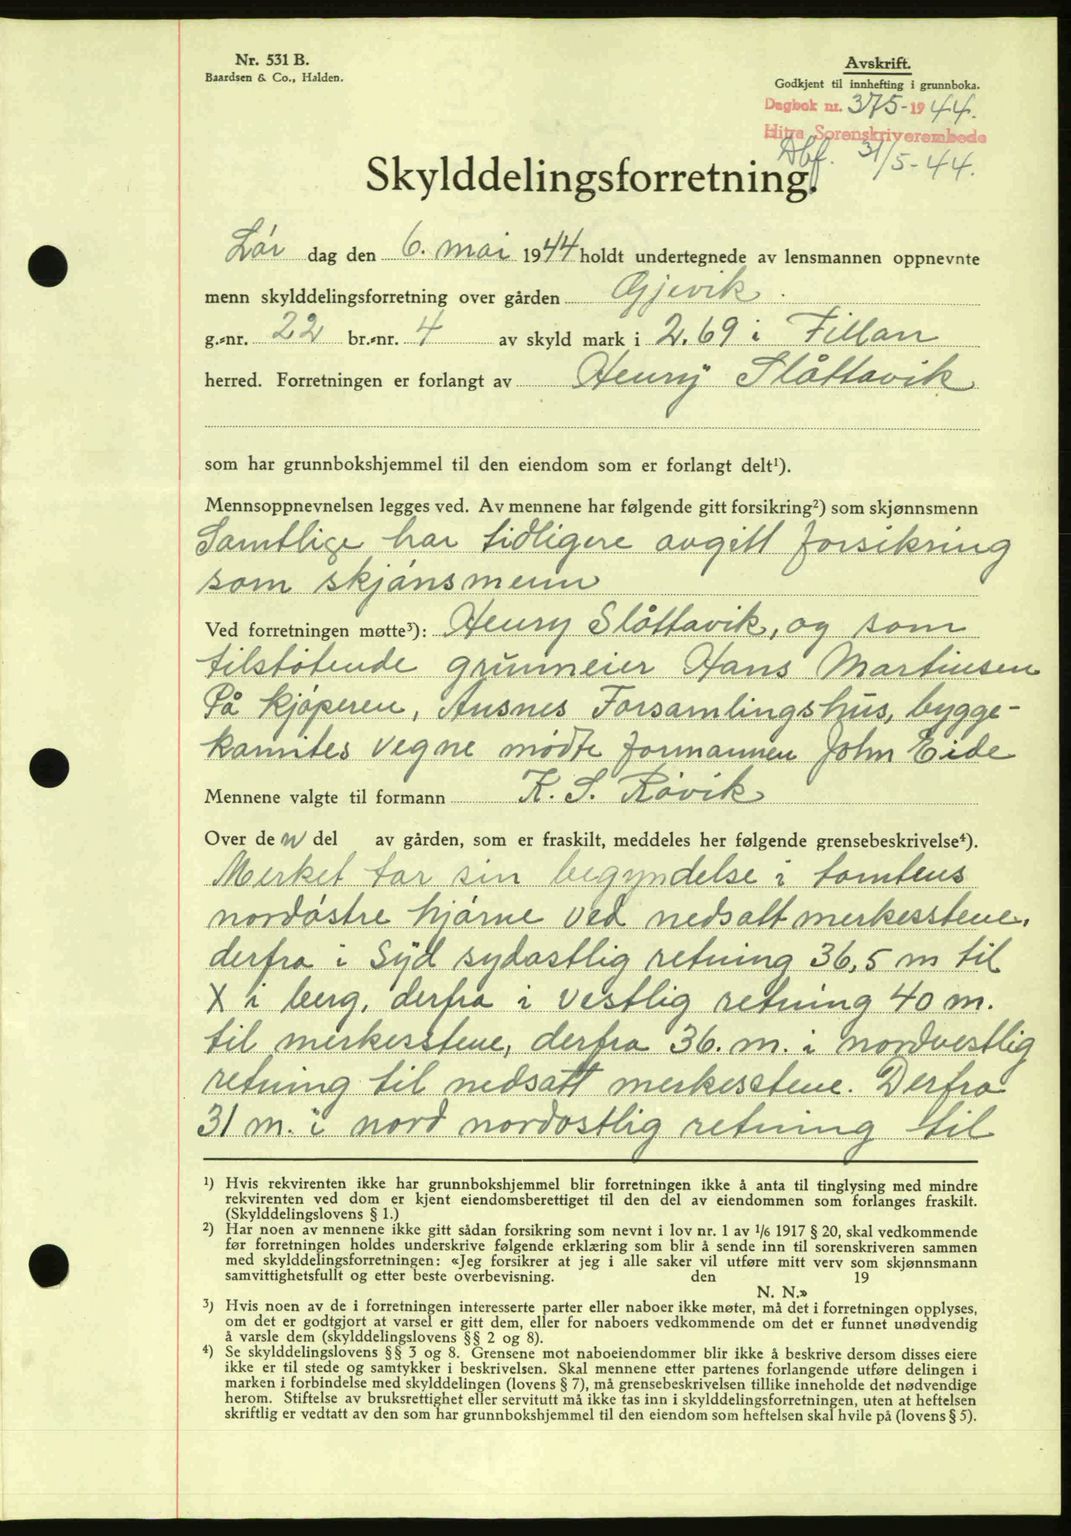 Nr. 531 B.
Baardsen & Co., Halden.
Avskrift.
Godkjent til innhefting i grunnboka.
Dagbok nr. 375-1944.
Hitra Sorenskriverembede
Dbf. 31/5-44.
Skylddelingsforretning.
Lør dag den 6. mai 1944 holdt undertegnede av lensmannen oppnevnte
menn skylddelingsforretning over gården Gjevik.
g.-nr. 22 br.-nr. 4 av skyld mark i 2.69 i Fillan
herred. Forretningen er forlangt av Henry Slåttavik
som har grunnbokshjemmel til den eiendom som er forlangt delt¹).
Mennsoppnevnelsen legges ved. Av mennene har følgende gitt forsikring²) som skjønnsmenn
Samtlige har tidligere avgitt forsikring
som skjønsmenn
Ved forretningen møtte³): Henry Slåttavik, og som
tilstøtende grunneier Hans Martinsen
På kjøperen, Ansnes Forsamlingshus, bygge-
komites vegne mødte formannen John Eide
Mennene valgte til formann K. S. Røvik
Over den del av gården, som er fraskilt, meddeles her følgende grensebeskrivelse⁴).
Merket tar sin begyndelse i tomtens
nordøstre hjørne ved nedsatt merkesstene,
derfra i Syd sydøstlig retning 36,5 m til
X i berg, derfra i vestlig retning 40 m.
til merkesstene, derfra 36. m. i nordvestlig
retning til nedsatt merkesstene. Derfra
31 m. i nord nordøstlig retning til
¹) Hvis rekvirenten ikke har grunnbokshjemmel blir forretningen ikke å anta til tinglysing med mindre
rekvirenten ved dom er kjent eiendomsberettiget til den del av eiendommen som forlanges fraskilt.
(Skylddelingslovens § 1.)
²) Har noen av mennene ikke gitt sådan forsikring som nevnt i lov nr. 1 av 1/6 1917 § 20, skal vedkommende
før forretningen holdes underskrive følgende erklæring som blir å sende inn til sorenskriveren sammen
med skylddelingsforretningen: «Jeg forsikrer at jeg i alle saker vil utføre mitt verv som skjønnsmann
samvittighetsfullt og etter beste overbevisning. den 19
N. N.»
³) Hvis noen av de i forretningen interesserte parter eller naboer ikke møter, må det i forretningen opplyses,
om det er godtgjort at varsel er gitt dem, eller for naboers vedkommende om det er funnet unødvendig
å varsle dem (skylddelingslovens §§ 2 og 8).
⁴) Se skylddelingslovens §§ 3 og 8. Grensene mot naboeiendommer blir ikke å beskrive dersom disses eiere
ikke er til stede og samtykker i beskrivelsen. Skal mennene etter partenes forlangende utføre delingen i
marken i forbindelse med skylddelingen (lovens § 7), må grensebeskrivelsen tillike inneholde det nødvendige
herom. Stiftelse av bruksrettighet eller servitutt må ikke tas inn i skylddelingsforretningen, uten at heftelsen
skriftlig er vedtatt av den som har grunnbokshjemmel til den eiendom som heftelsen skal hvile på (lovens § 5).